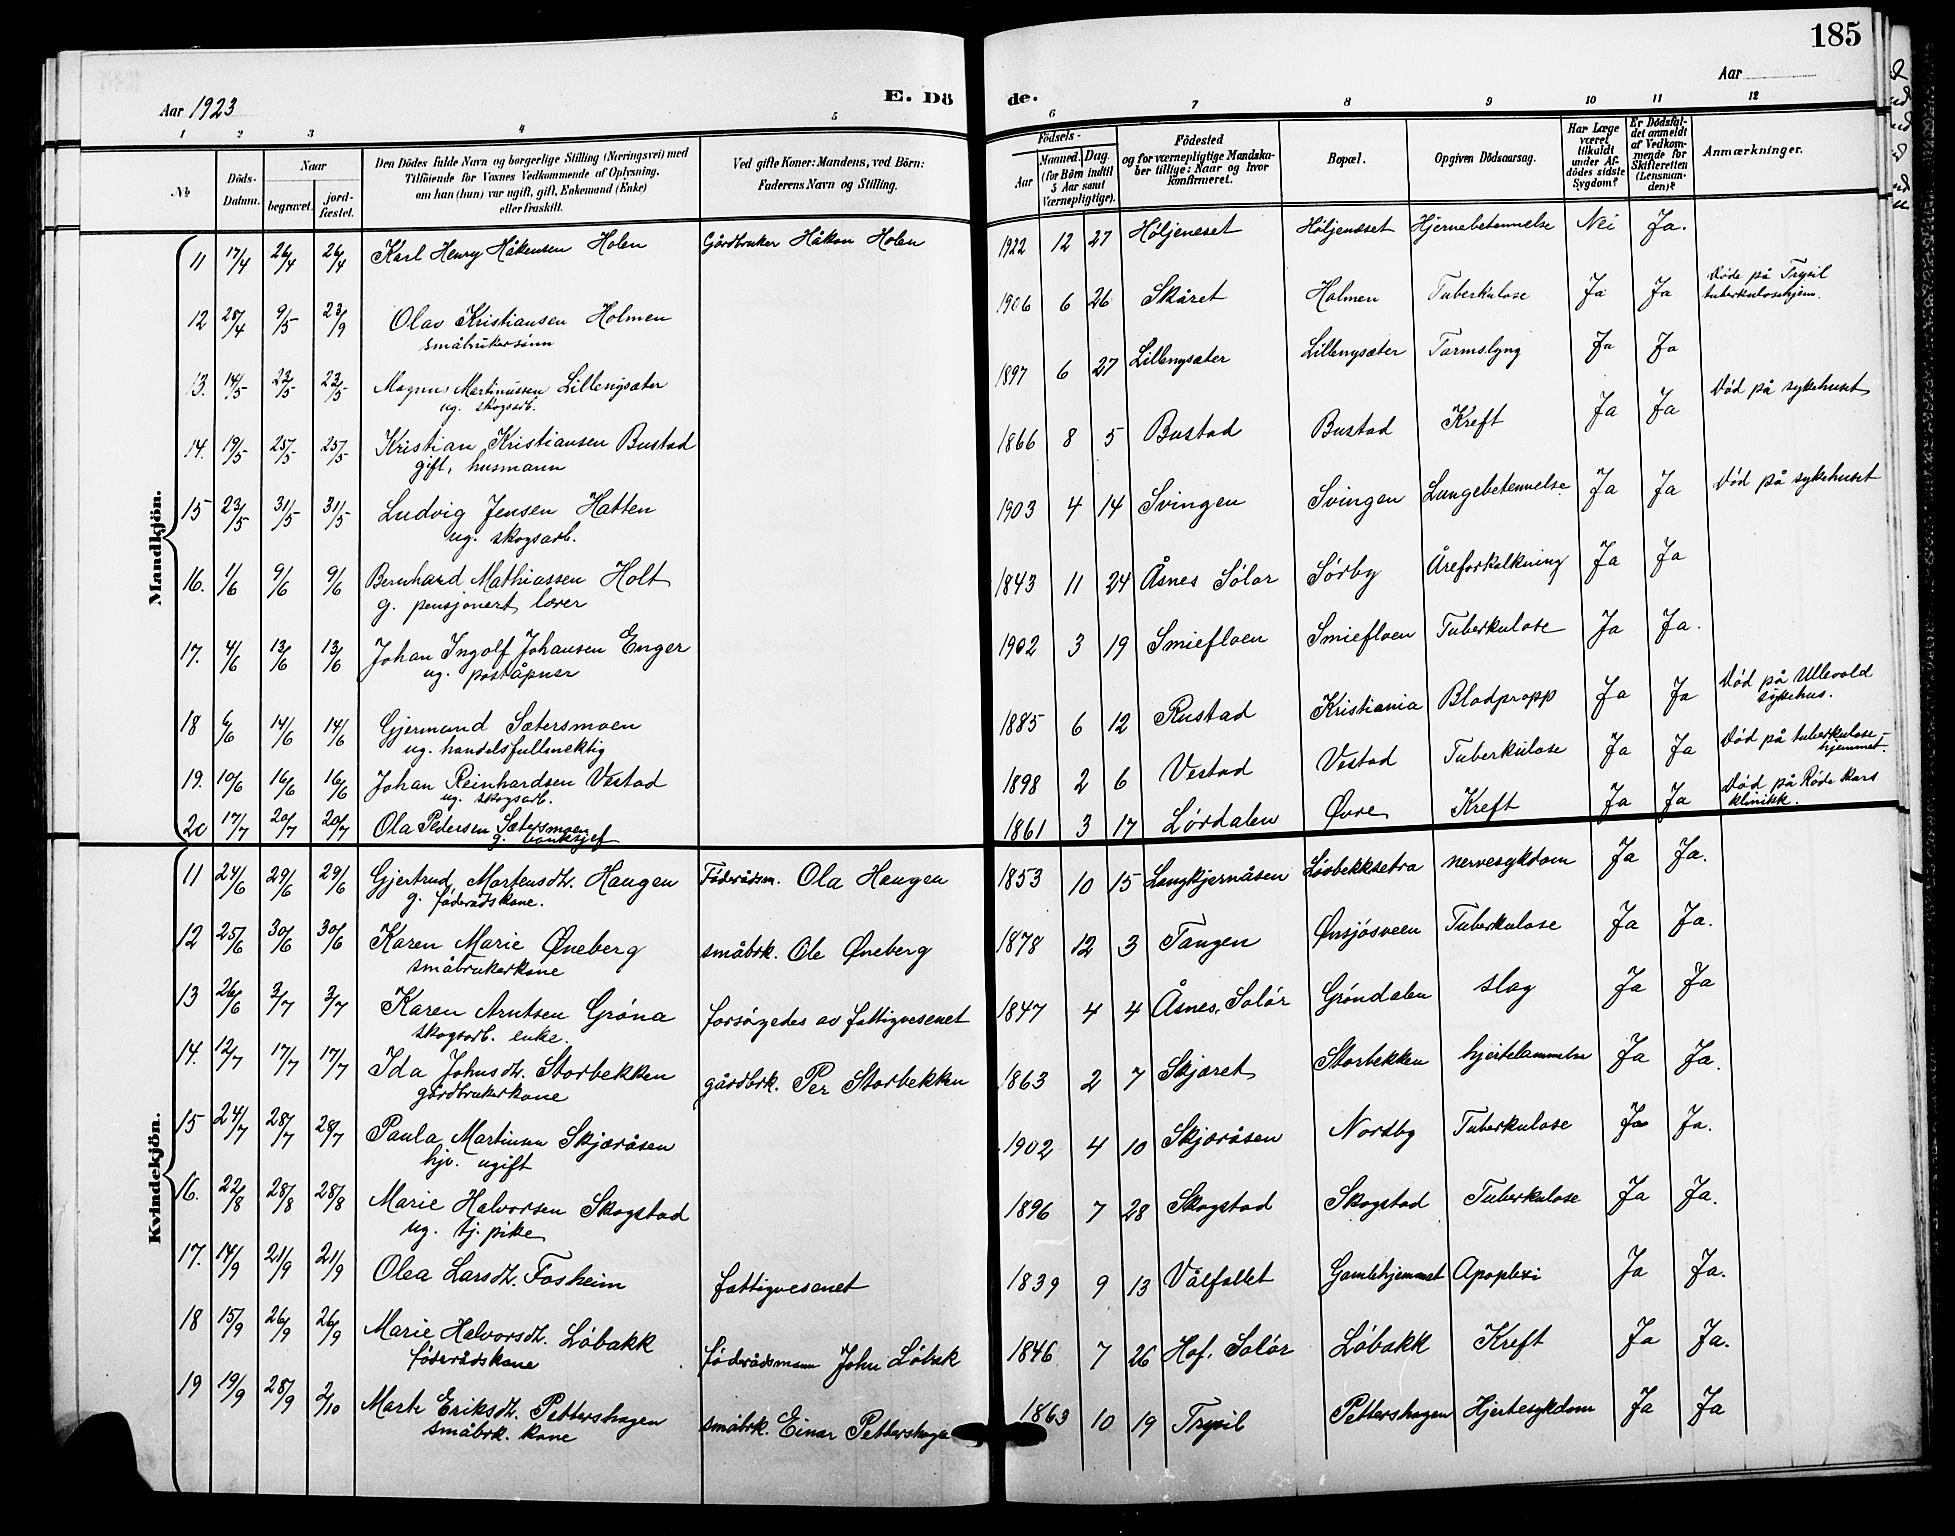 185
Aar 1923
E. Dö
de.
Aar
1 2 3 4 5 6 7 8 9 10 11 12
№
Döds-
Datum.
Naar
begravet.
jord-
fæstet.
Den Dödes fulde Navn og borgerlige Stilling (Næringsvei) med
Tilföiende for Voxnes Vedkommende af Oplysning,
om han (hun) var ugift, gift, Enkemand (Enke)
eller fraskilt.
Ved gifte Koner: Mandens, ved Börn:
Faderens Navn og Stilling.
Födsels-
Aar
Maaned. Dag.
(for Börn indtil
5 Aar samt
Værnepligtige).
Födested
og for værnepligtige Mandska-
ber tillige: Naar og hvor
konfirmeret.
Bopæl.
Opgiven Dödsaarsag.
Har Læge
været
tilkaldt
under Af-
dödes sidste
Sygdom?
Er Dödsfal-
det anmeldt
af Vedkom-
mende for
Skifteretten
(Lensman-
den)?
Anmærkninger.
Mandkjön.
11 17/4 26/4 26/4 Karl Henry Håkensen Holen Gårdbruker Håkon Holen 1922 12 27 Høljeneset Høljeneset Hjernebetennelse Nei Ja.
12 28/4 9/5 23/9 Olav Kristiansen Holmen 1906 6 26 Skåret Holmen Tuberkulose Ja Ja Døde på Trysil
småbrukersønn tuberkulosehjem.
13. 14/5 23/5 23/5 Magnus Martinussen Lillengsæter 1897 6 27 Lillengsæter Lillengsæter Tarmslyng Ja Ja
ug. skogsarb.
14. 19/5 25/5 25/5 Kristian Kristiansen Bustad 1866 8 5 Bustad Bustad Kreft Ja Ja Død på sykehuset
gift, husmann
15 23/5 31/5 31/5 Ludvig Jensen Hatten 1903 4 14 Svingen Svingen Lungebetennelse Ja Ja Død på sykehuset
ug. skogsarb.
16. 1/6 9/6 9/6 Bernhard Mathiassen Holt 1843 11 24 Åsnes Solør Sørby Åreforkalkning Ja Ja
g. pensjonert lærer
17. 4/6 13/6 13/6 Johan Ingolf Johansen Enger 1902 3 19 Smiefloen Smiefloen Tuberkulose Ja Ja.
ug. poståpner
18 6/6 14/6 14/6 Gjermund Sætersmoen 1885 6 12 Rustad Kristiania Blodpropp Ja Ja Død på Ullevold
ug. handelsfullmektig sykehus.
19. 10/6 16/6 16/6 Johan Reinhardsen Vestad 1898 2 6 Vestad Vestad Tuberkulose Ja Ja Død på tuberkulose-
ug. skogsarb. hjemmet.
20 17/7 20/7 20/7 Ola Pedersen Sætersmoen 1861 3 17 Lørdalen Øvre Kreft Ja Ja Død på Røde Kors
g. banksjef klinikk.
Kvindekjön.
11 24/6 29/6 29/6 Gjertrud Martensdt. Haugen Føderådsm. Ola Haugen 1853 10 15 Langkjernåsen Løvbekksetra nervesykdom Ja Ja.
g. føderådskone.
12 25/6 30/6 30/6 Karen Marie Øneberg småbrk. Ole Øneberg 1878 12 3 Tangen Ønsjøsveen Tuberkulose Ja Ja.
småbrukerkone
13 26/6 3/7 3/7 Karen Arntsen Grøna forsørgedes av fattigvesenet 1847 4 4 Åsnes, Solør Grøndalen slag Ja Ja
skogsarb. enke.
14. 12/7 17/7 17/7 Ida Johnsdt. Storbekken gårdbrk. Per Storbekken 1863 2 7 Skjæret Storbekken hjertelammelse Ja Ja.
gårdbrukerkone
15 24/7 28/7 28/7 Paula Martinsen Skjæråsen 1902 4 10 Skjæråsen Nordby Tuberkulose Ja Ja.
hjv. ugift
16. 22/8 28/8 28/8 Marie Halvorsen Skogstad 1896 7 28 Skogstad Skogstad Tuberkulose Ja Ja.
ug. tj. pike
17. 14/9 21/9 21/9 Olea Larsdt. Fosheim fattigvesenet 1839 9 13 Vålfallet Gamlehjemmet Apoplexi Ja Ja.
18 15/9 26/9 26/9 Marie Halvorsdt. Løbakk føderådsmann John Løbak 1846 7 26 Hof, Solør Løbakk Kreft Ja Ja.
føderådskone
19 19/9 28/9 2/10 Marte Eriksdt. Pettershagen småbrk. Einar Pettershage 1863 10 19 Trysil Pettershagen Hjertesykdom Ja Ja
småbrk. kone